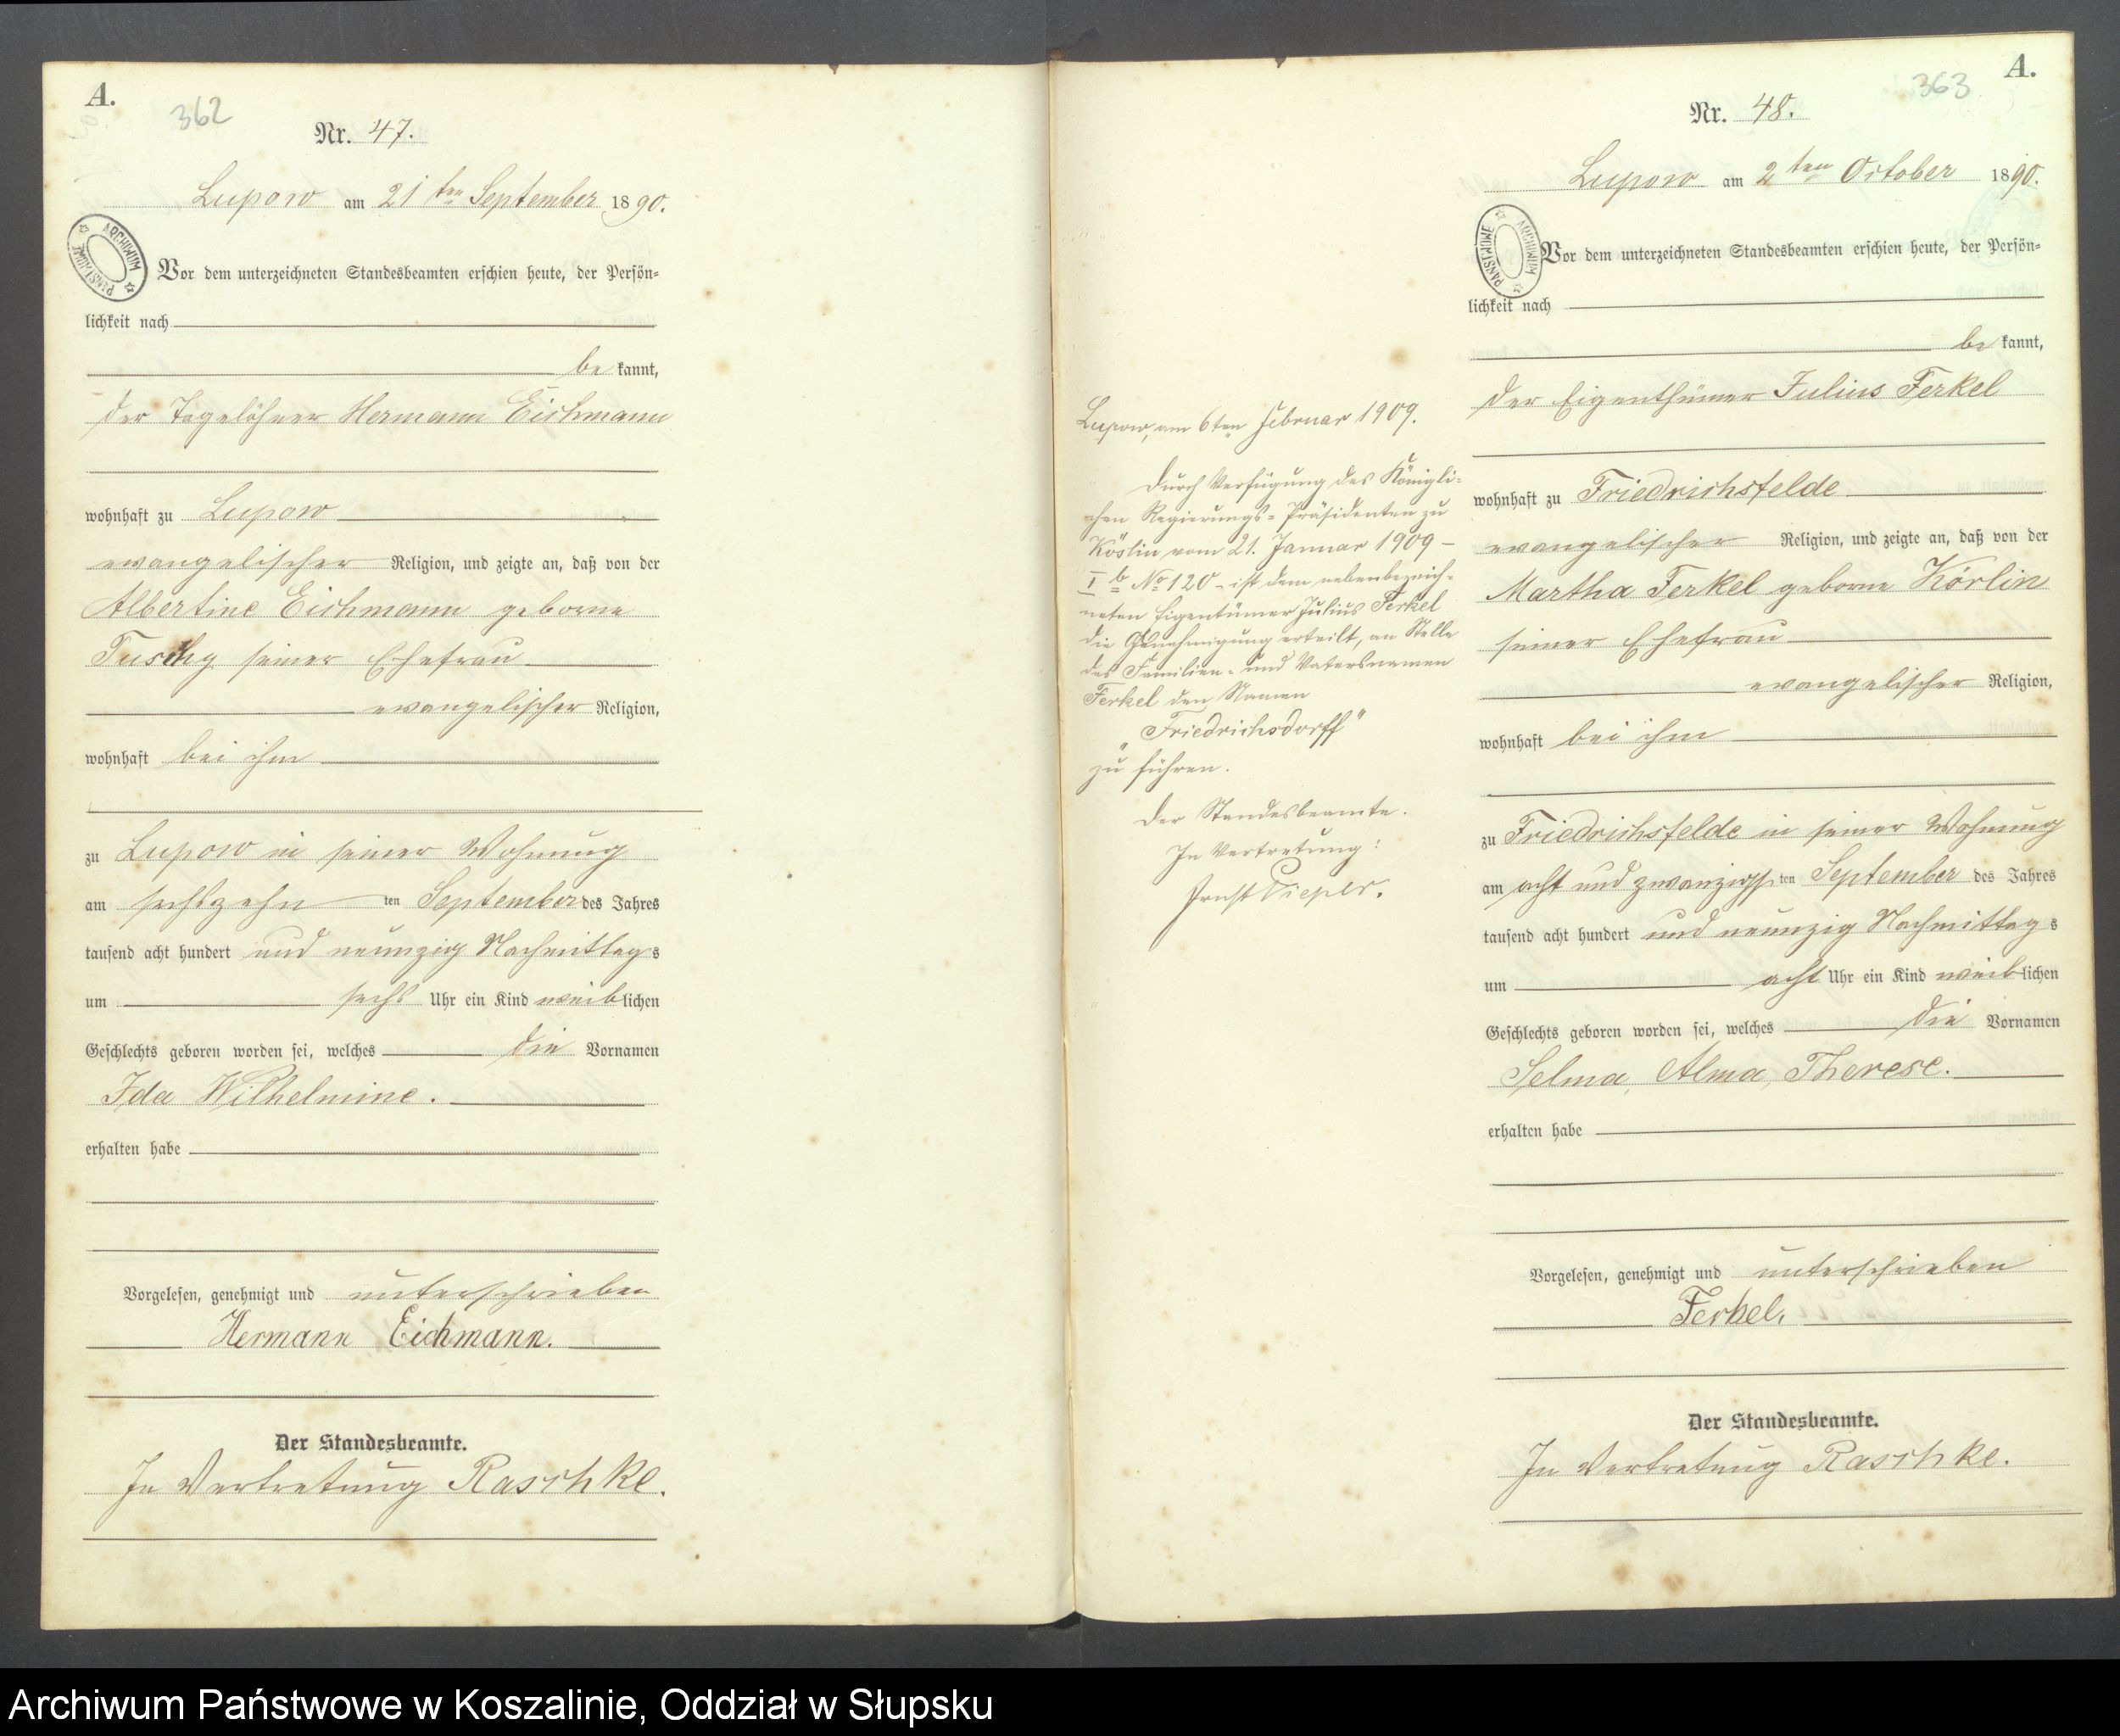 A.
362
Nr. 47.
Lupow am 21 ten September 1890.
ARCHIWUM PAŃSTWOWE
Vor dem unterzeichneten Standesbeamten erschien heute, der Persön=
lichkeit nach
be kannt,
der Tagelöhner Hermann Eichmann
wohnhaft zu Lupow
evangelischer Religion, und zeigte an, daß von der
Albertine Eichmann geborne
seiner Ehefrau
evangelischer Religion,
wohnhaft bei ihm
zu Lupow in seiner Wohnung
am sechszehn ten September des Jahres
tausend acht hundert und neunzig Nachmittags
um sechs Uhr ein Kind weiblichen
Geschlechts geboren worden sei, welches die Vornamen
Ida Wilhelmine.
erhalten habe
Vorgelesen, genehmigt und unterschrieben
Hermann Eichmann.
Der Standesbeamte.
In Vertretung Raschke.
Lupow, am 6ten Februar 1909.
Durch Verfügung des Königli=
chen Regierungs= Präsidenten zu
Köslin vom 21. Januar 1909 –
I b No 120 – ist dem nebenbezeich=
neten Eigentümer Julius Ferkel
die Genehmigung erteilt, an Stelle
des Familien- und Vatersnamen
Ferkel den Namen
„Friedrichsdorff"
zu führen.
Der Standesbeamte.
In Vertretung:
Ernst Pieper.
A.
363
Nr. 48.
Lupow am 2 ten October 1890.
ARCHIWUM PAŃSTWOWE
Vor dem unterzeichneten Standesbeamten erschien heute, der Persön=
lichkeit nach
be kannt,
der Eigenthümer Julius Ferkel
wohnhaft zu Friedrichsfelde
evangelischer Religion, und zeigte an, daß von der
Martha Ferkel geborne Körlin
seiner Ehefrau
evangelischer Religion,
wohnhaft bei ihm
zu Friedrichsfelde in seiner Wohnung
am acht und zwanzigsten September des Jahres
tausend acht hundert und neunzig Nachmittags
um acht Uhr ein Kind weiblichen
Geschlechts geboren worden sei, welches die Vornamen
Selma, Alma, Therese.
erhalten habe
Vorgelesen, genehmigt und unterschrieben
Ferkel.
Der Standesbeamte.
In Vertretung Raschke.
Archiwum Państwowe w Koszalinie, Oddział w Słupsku